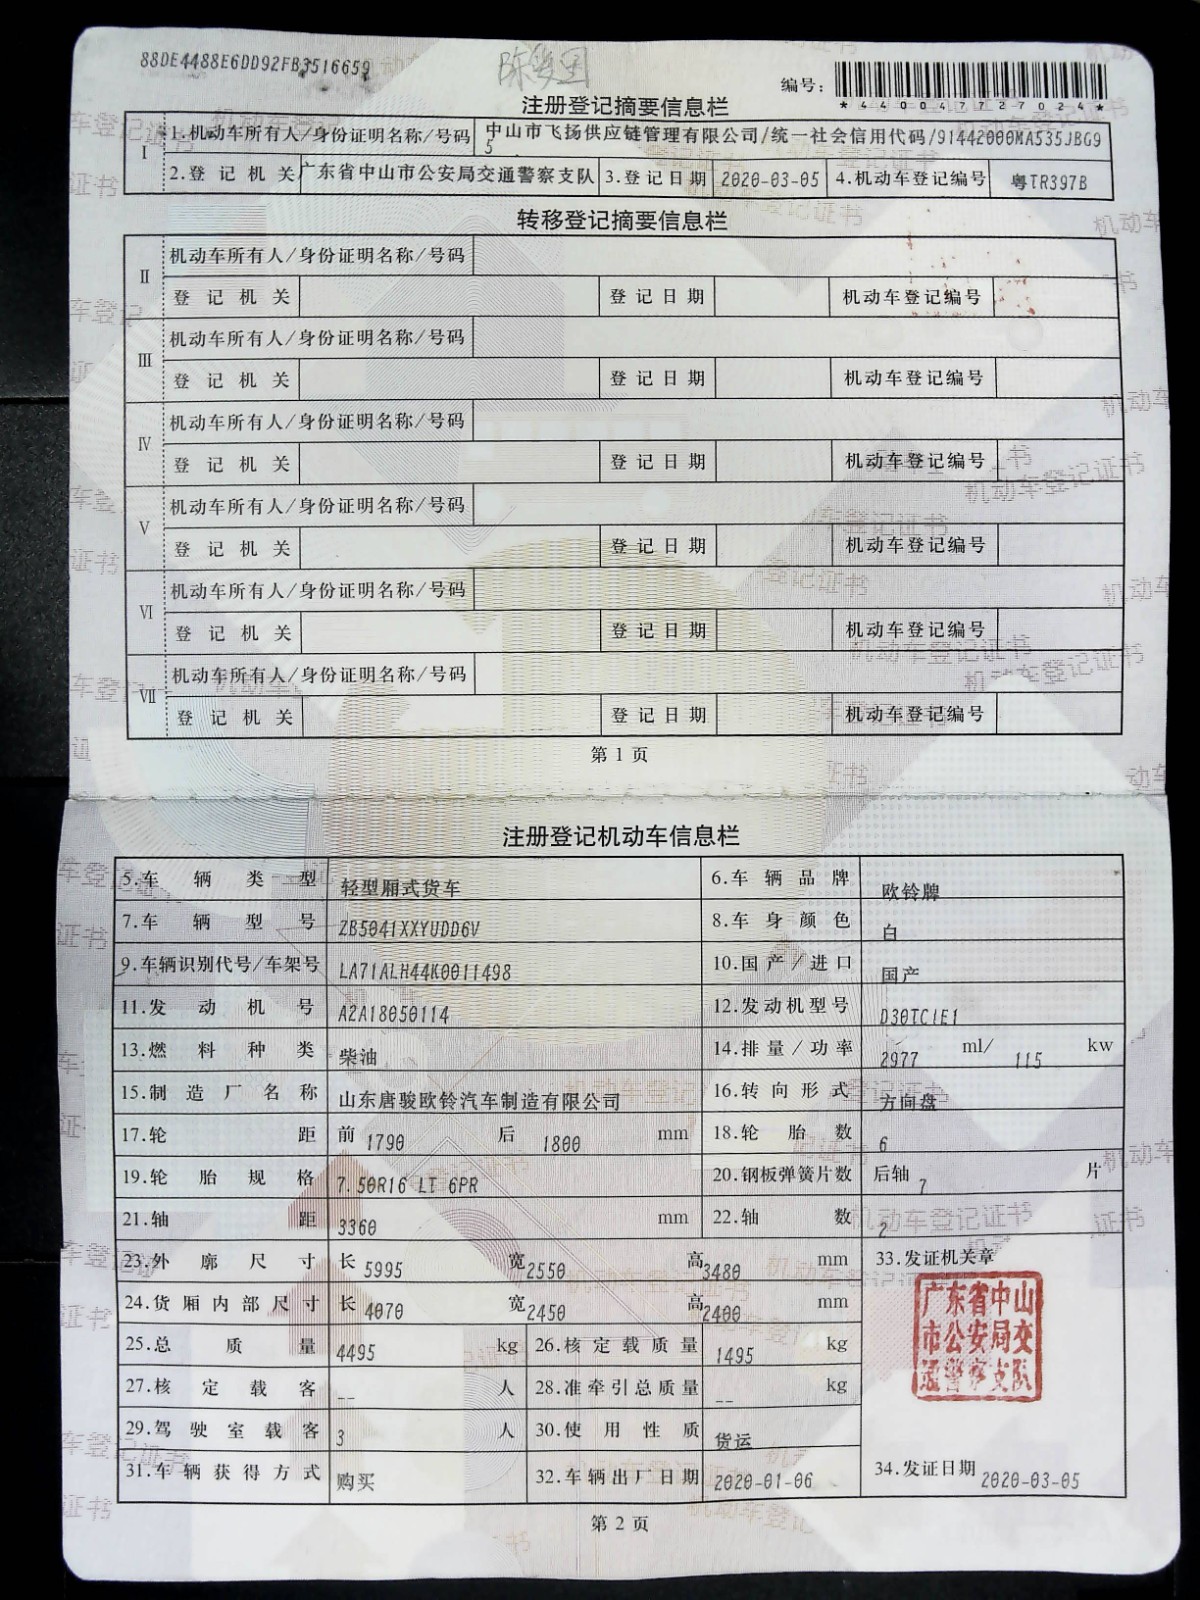 88DE4488E6DD92FB3516659
编号：
*440047727024*
注册登记摘要信息栏
Ⅰ 1.机动车所有人/身份证明名称/号码 中山市飞扬供应链管理有限公司/统一社会信用代码/91442000MA535JBG9
5
2.登记机关 广东省中山市公安局交通警察支队 3.登记日期 2020-03-05 4.机动车登记编号 粤TR397B
转移登记摘要信息栏
Ⅱ 机动车所有人/身份证明名称/号码
登记机关 登记日期 机动车登记编号
Ⅲ 机动车所有人/身份证明名称/号码
登记机关 登记日期 机动车登记编号
Ⅳ 机动车所有人/身份证明名称/号码
登记机关 登记日期 机动车登记编号
Ⅴ 机动车所有人/身份证明名称/号码
登记机关 登记日期 机动车登记编号
Ⅵ 机动车所有人/身份证明名称/号码
登记机关 登记日期 机动车登记编号
Ⅶ 机动车所有人/身份证明名称/号码
登记机关 登记日期 机动车登记编号
第1页
注册登记机动车信息栏
5.车辆类型 轻型厢式货车 6.车辆品牌 欧铃牌
7.车辆型号 ZB5041XXYUDD6V 8.车身颜色 白
9.车辆识别代号/车架号 LA71ALH44K0011498 10.国产/进口 国产
11.发动机号 A2A18050114 12.发动机型号 D30TCIE1
13.燃料种类 柴油 14.排量/功率 2977 ml/ 115 kw
15.制造厂名称 山东唐骏欧铃汽车制造有限公司 16.转向形式 方向盘
17.轮距 前 1790 后 1800 mm 18.轮胎数 6
19.轮胎规格 7.50R16 LT 6PR 20.钢板弹簧片数 后轴 7 片
21.轴距 3360 mm 22.轴数 2
23.外廓尺寸 长 5995 宽 2550 高 3480 mm 33.发证机关章
24.货厢内部尺寸 长 4070 宽 2450 高 2400 mm
广东省中山
市公安局交
通警察支队
25.总质量 4495 kg 26.核定载质量 1495 kg
27.核定载客 -- 人 28.准牵引总质量 -- kg
29.驾驶室载客 3 人 30.使用性质 货运
31.车辆获得方式 购买 32.车辆出厂日期 2020-01-06 34.发证日期 2020-03-05
第2页